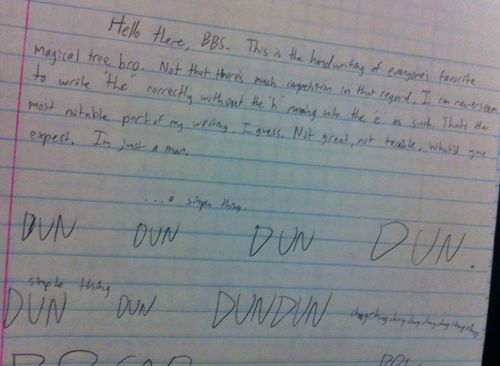 Hello there, BBS. This is the handwriting of everyone's favorite
magical tree bro. Not that there's much competition in that regard. I can never seem
to write "the" correctly without the 'h' running into the 'e' as such. That's the
most notable part of my writing, I guess. Not great, not terrible. What'd you
expect. I'm just a man.
....a simple thing.
DUN DUN DUN DUN.
simple thing
DUN DUN DUNDUN